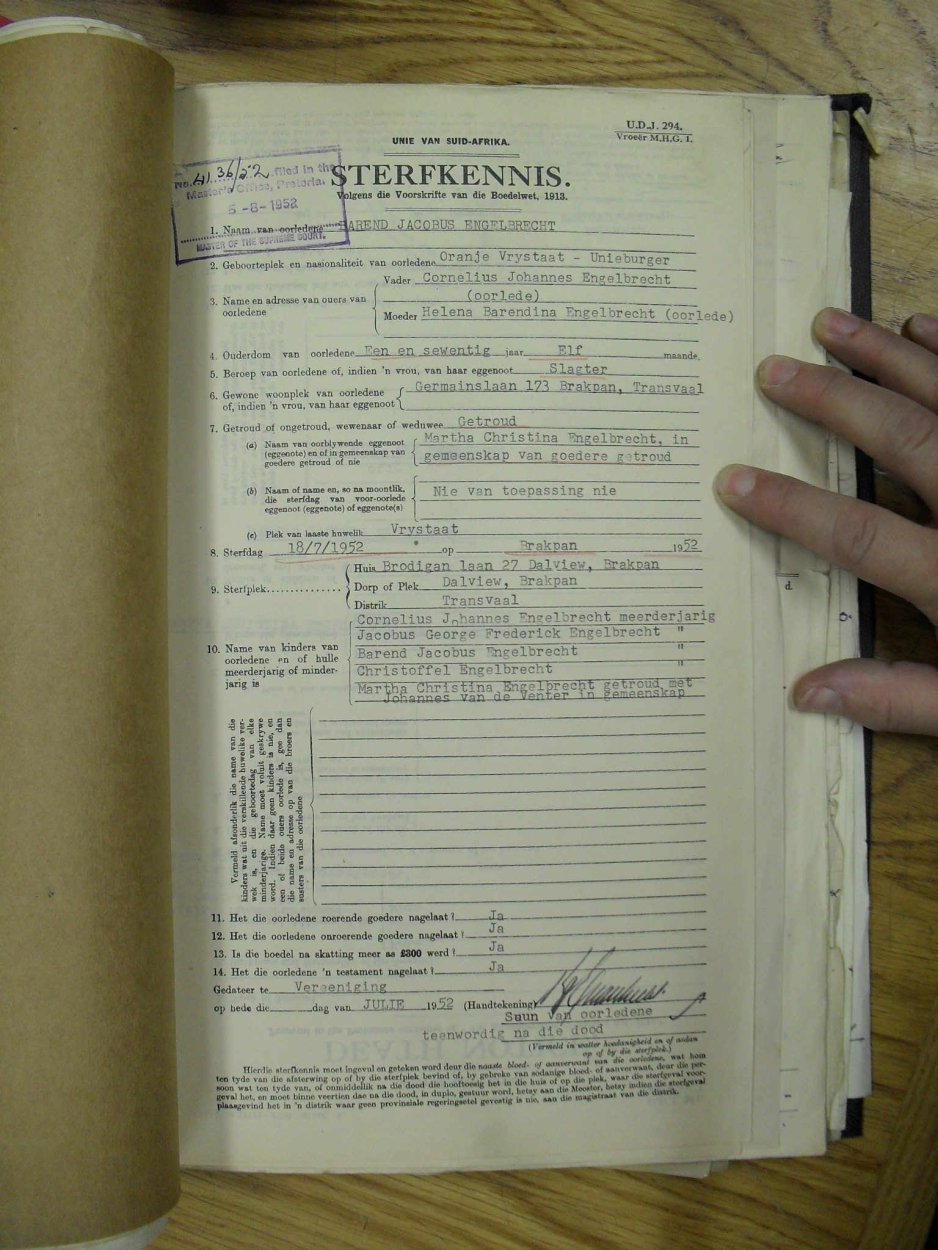 U.D.J. 294.
Vroeër M.H.G. 1.
UNIE VAN SUID-AFRIKA.
No. 4136/52 filed in the
Master's Office, Pretoria.
5 -8- 1952
MASTER OF THE SUPREME COURT.
STERFKENNIS.
Volgens die Voorskrifte van die Boedelwet, 1913.
1. Naam van oorledene BAREND JACOBUS ENGELBRECHT
2. Geboorteplek en nasionaliteit van oorledene Oranje Vrystaat - Unieburger
3. Name en adresse van ouers van oorledene
Vader Cornelius Johannes Engelbrecht
(oorlede)
Moeder Helena Barendina Engelbrecht (oorlede)
4. Ouderdom van oorledene Een en sewentig jaar Elf maande.
5. Beroep van oorledene of, indien 'n vrou, van haar eggenoot Slagter
6. Gewone woonplek van oorledene of, indien 'n vrou, van haar eggenoot
Germainslaan 173 Brakpan, Transvaal
7. Getroud of ongetroud, wewenaar of weduwee Getroud
(a) Naam van oorblywende eggenoot (eggenote) en of in gemeenskap van goedere getroud of nie
Martha Christina Engelbrecht, in
gemeenskap van goedere getroud
(b) Naam of name en, so na moontlik, die sterfdag van voor-oorlede eggenoot (eggenote) of eggenote(s)
Nie van toepassing nie
(c) Plek van laaste huwelik Vrystaat
8. Sterfdag 18/7/1952 op Brakpan 1952
9. Sterfplek
Huis Brodigan laan 27 Dalview, Brakpan
Dorp of Plek Dalview, Brakpan
Distrik Transvaal
10. Name van kinders van oorledene en of hulle meerderjarig of minderjarig is
Cornelius Johannes Engelbrecht meerderjarig
Jacobus George Frederick Engelbrecht "
Barend Jacobus Engelbrecht "
Christoffel Engelbrecht "
Martha Christina Engelbrecht getroud met
Johannes van de Venter in gemeenskap
Vermeld afsonderlik die name van die
kinders wat uit die verskillende huwelike ver-
wek is, en die geboortedag van elke
minderjarige. Name moet voluit geskrywe
word. Indien daar geen kinders is nie, en
een of beide ouers oorlede is, gee dan
die name en adresse op van die broers en
susters van die oorledene
11. Het die oorledene roerende goedere nagelaat? Ja
12. Het die oorledene onroerende goedere nagelaat? Ja
13. Is die boedel na skatting meer as £300 werd? Ja
14. Het die oorledene 'n testament nagelaat? Ja
Gedateer te Vereeniging
op hede die dag van JULIE 1952 (Handtekening)
Suun van oorledene
teenwordig na die dood
(Vermeld in watter hoedanigheid en of aadan
op of by die sterfplek.)
Hierdie sterfkennis moet ingevul en geteken word deur die naaste bloed- of aanverwant van die oorledene, wat hom
ten tyde van die afsterwing op of by die sterfplek bevind of, by gebreke van sodanige bloed- of aanverwant, deur die per-
soon wat ten tyde van, of onmiddellik na die dood die hooftoesig het in die huis of op die plek, waar die sterfgeval voor-
geval het, en moet binne veertien dae na die dood, in duplo, gestuur word, hetsy aan die Meester, hetsy indien die sterfgeval
plaasgevind het in 'n distrik waar geen provinsiale regeringsetel gevestig is nie, aan die magistraat van die distrik.
d.